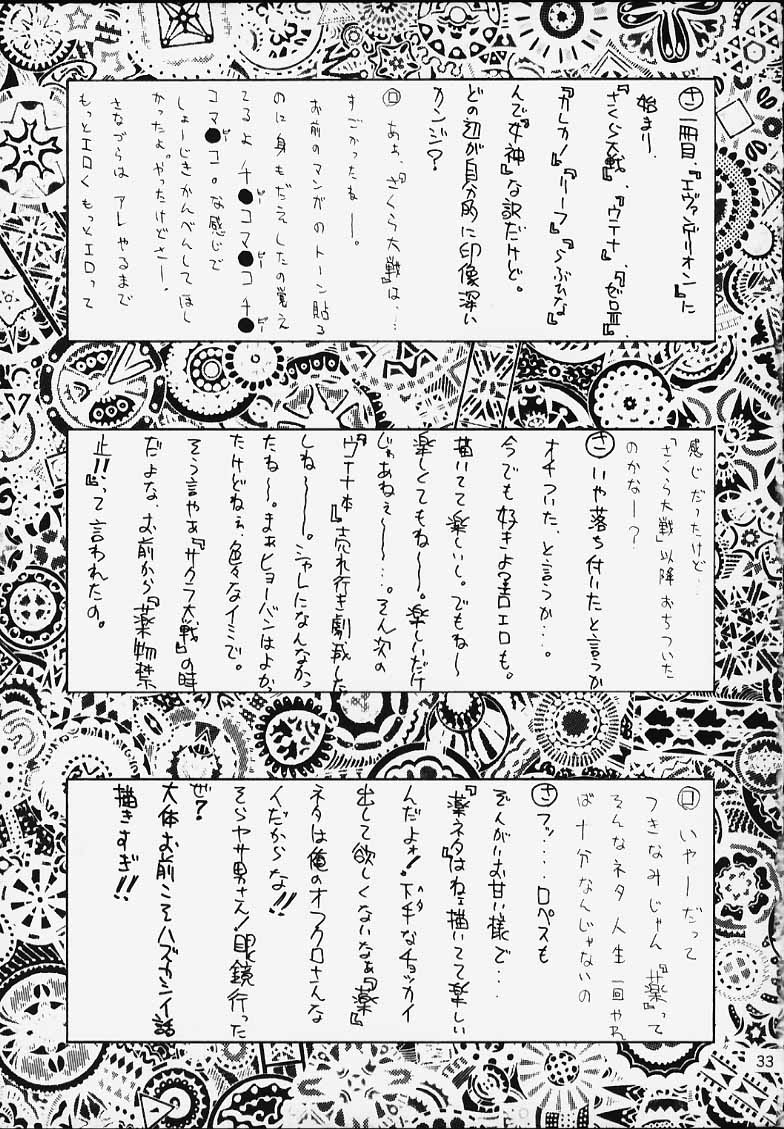 さ 一冊目、『エヴァンゲリオン』に
始まり、
『さくら大戦』、『ウテナ』、『ゼロ』、
『カレカノ』『リーフ』『らぶひな』
んで『女神』な訳だけど。
どの辺が自分的に印像深い
カンジ?
ロ あぁ、『さくら大戦』は…
すごかったねー。
お前のマンガのトーン貼る
のに身もだえしたの覚え
てるよ チ●コマ●コ チ●
コマ●コ。な感じで
しょーじきかんべんしてほし
かったよ。やったけどさー、
さなづらは アレ やるまで
もっとエロく もっとエロって
感じだったけど…
「さくら大戦」以降 おちついた
のかなー?
さ いや落ち付いたと言うか
オチついた、と言うか…。
今でも好きよ?エロエロも。
描いてて楽しいし。でもね〜
楽しくてもね〜〜。楽しいだけ
じゃあねぇ〜〜…。そん次の
『ウテナ本』売れ行き劇減した
しね〜〜。シャレになんなかっ
たね〜〜。まぁヒョーバンはよかっ
たけどねぇ、色々なイミで。
そう言やぁ『サクラ大戦』の時
だよな、お前から『薬物禁
止!!』って言われたの。
ロ いやーだって
つきなみじゃん『薬』って
そんなネタ人生一回やれ
ば十分なんじゃないの
さ フッ…。ロペスも
ぞんがいお甘い様で…
『薬ネタ』はねェ描いてて楽しい
んだよォ!下手なチョッカイ
出して欲しくないなぁ『薬』
ネタは俺のオフクロさんな
んだからな!!
そらヤサ男さん!眼鏡行った
ぜ?
大体お前こそハズカシイ話
描きすぎ!!
33